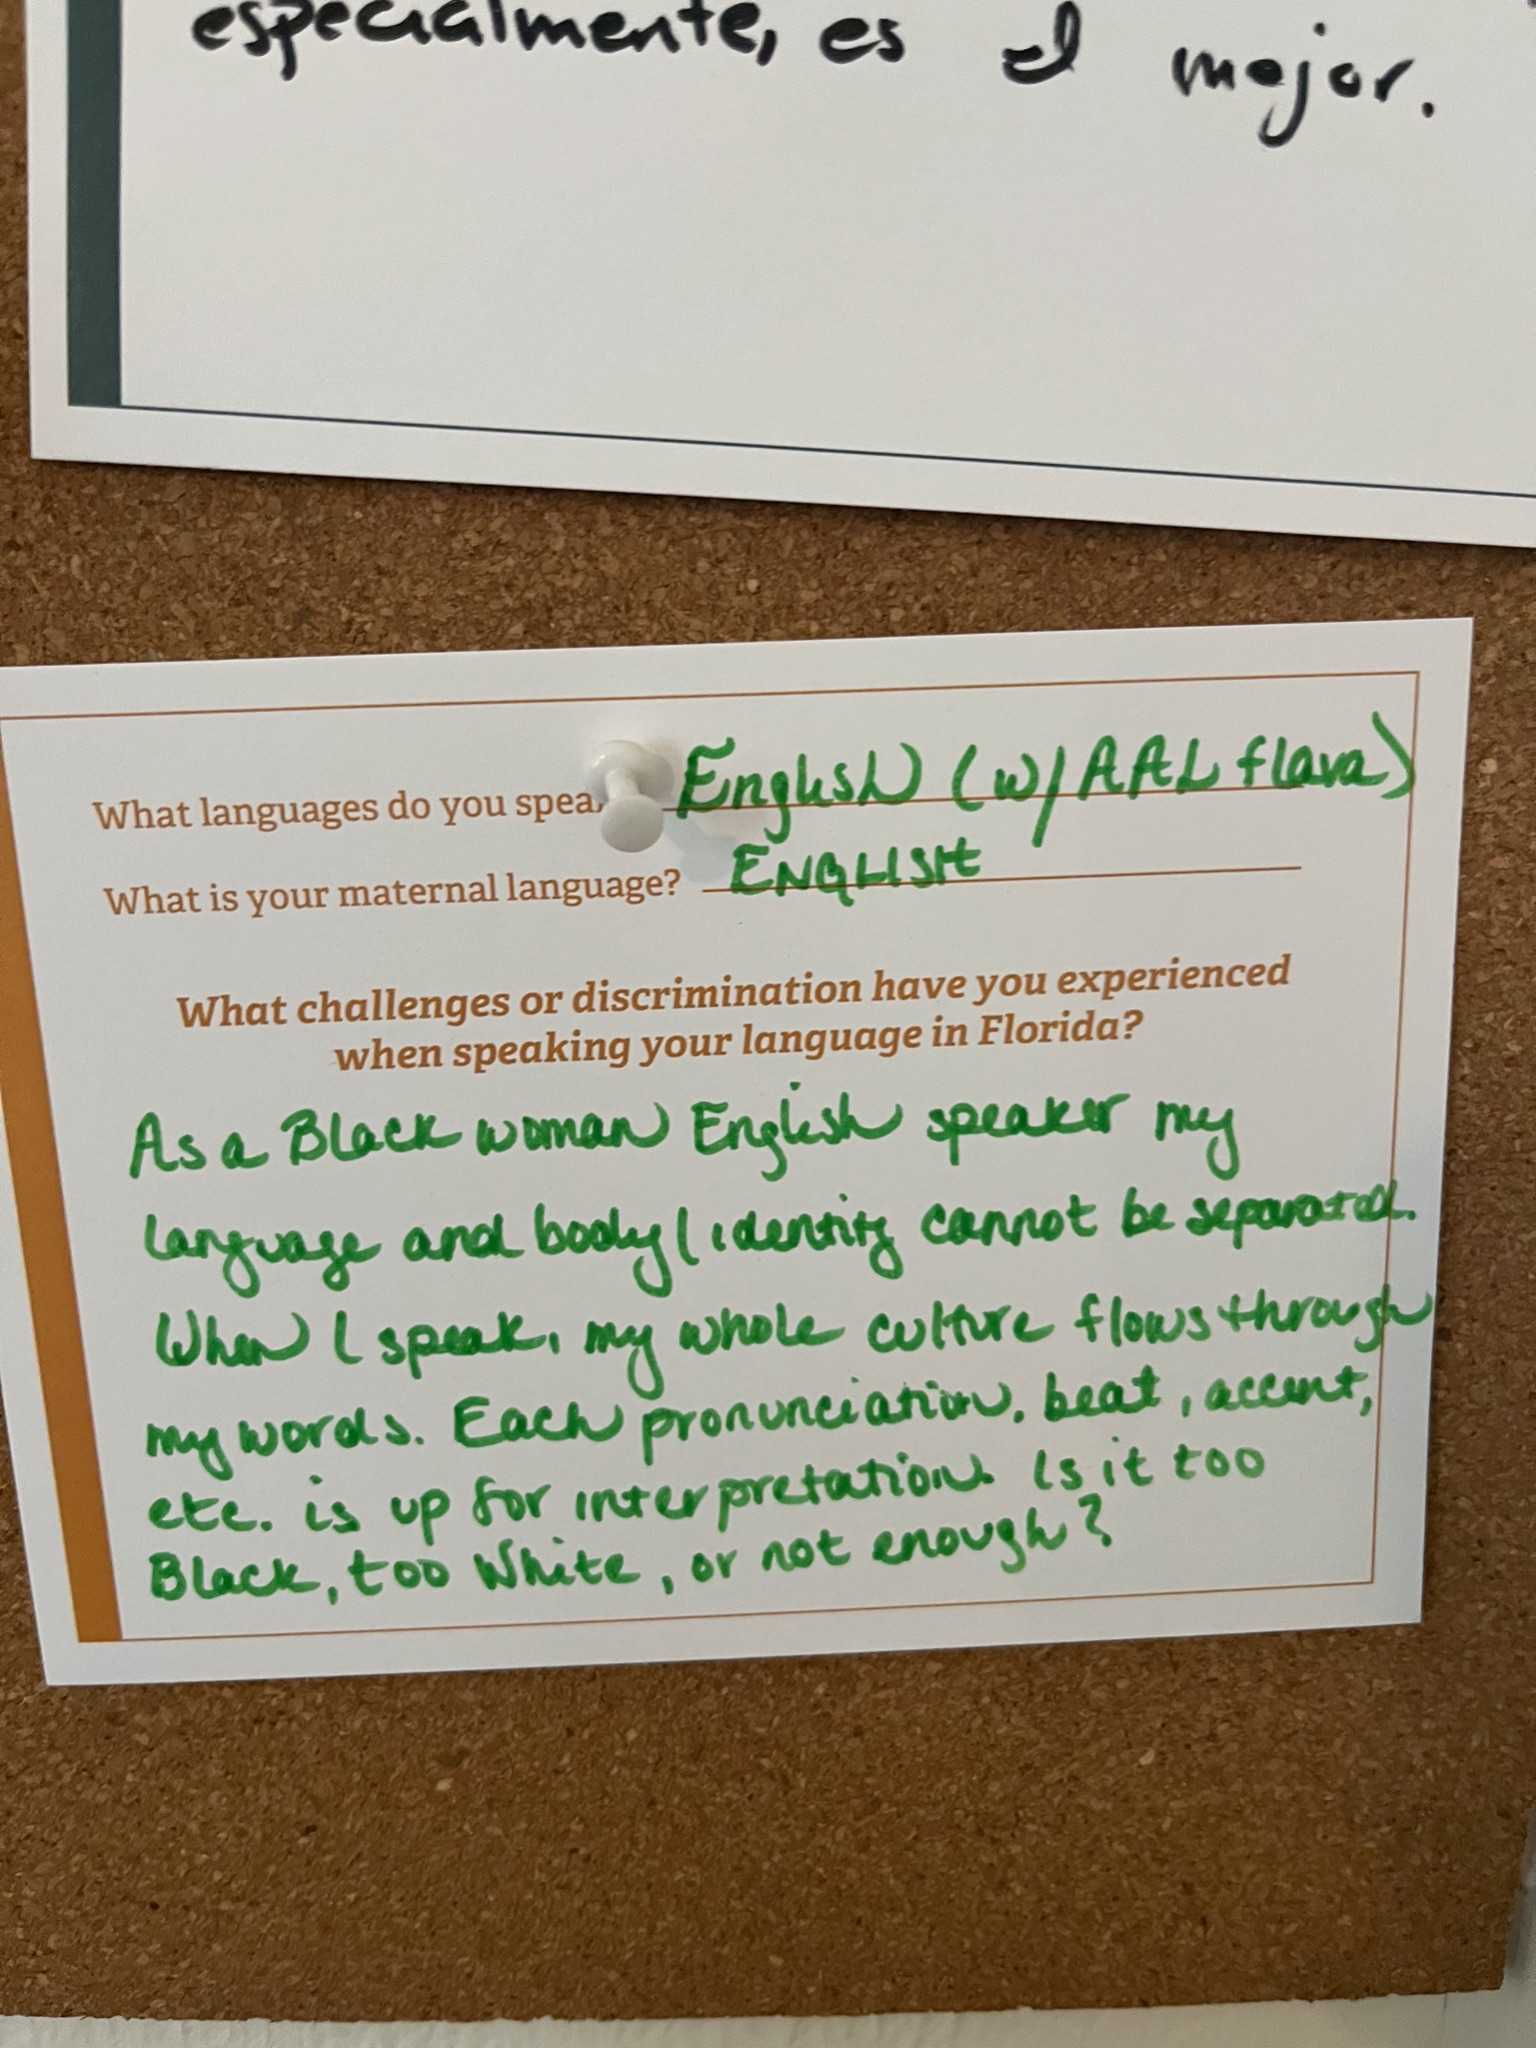 especialmente, es el mejor.
What languages do you spea English (w/ AAL flava)
What is your maternal language? ENGLISH
What challenges or discrimination have you experienced
when speaking your language in Florida?
As a Black woman English speaker my
language and body/identity cannot be separated.
When I speak, my whole culture flows through
my words. Each pronunciation, beat, accent,
etc. is up for interpretation. Is it too
Black, too White, or not enough?